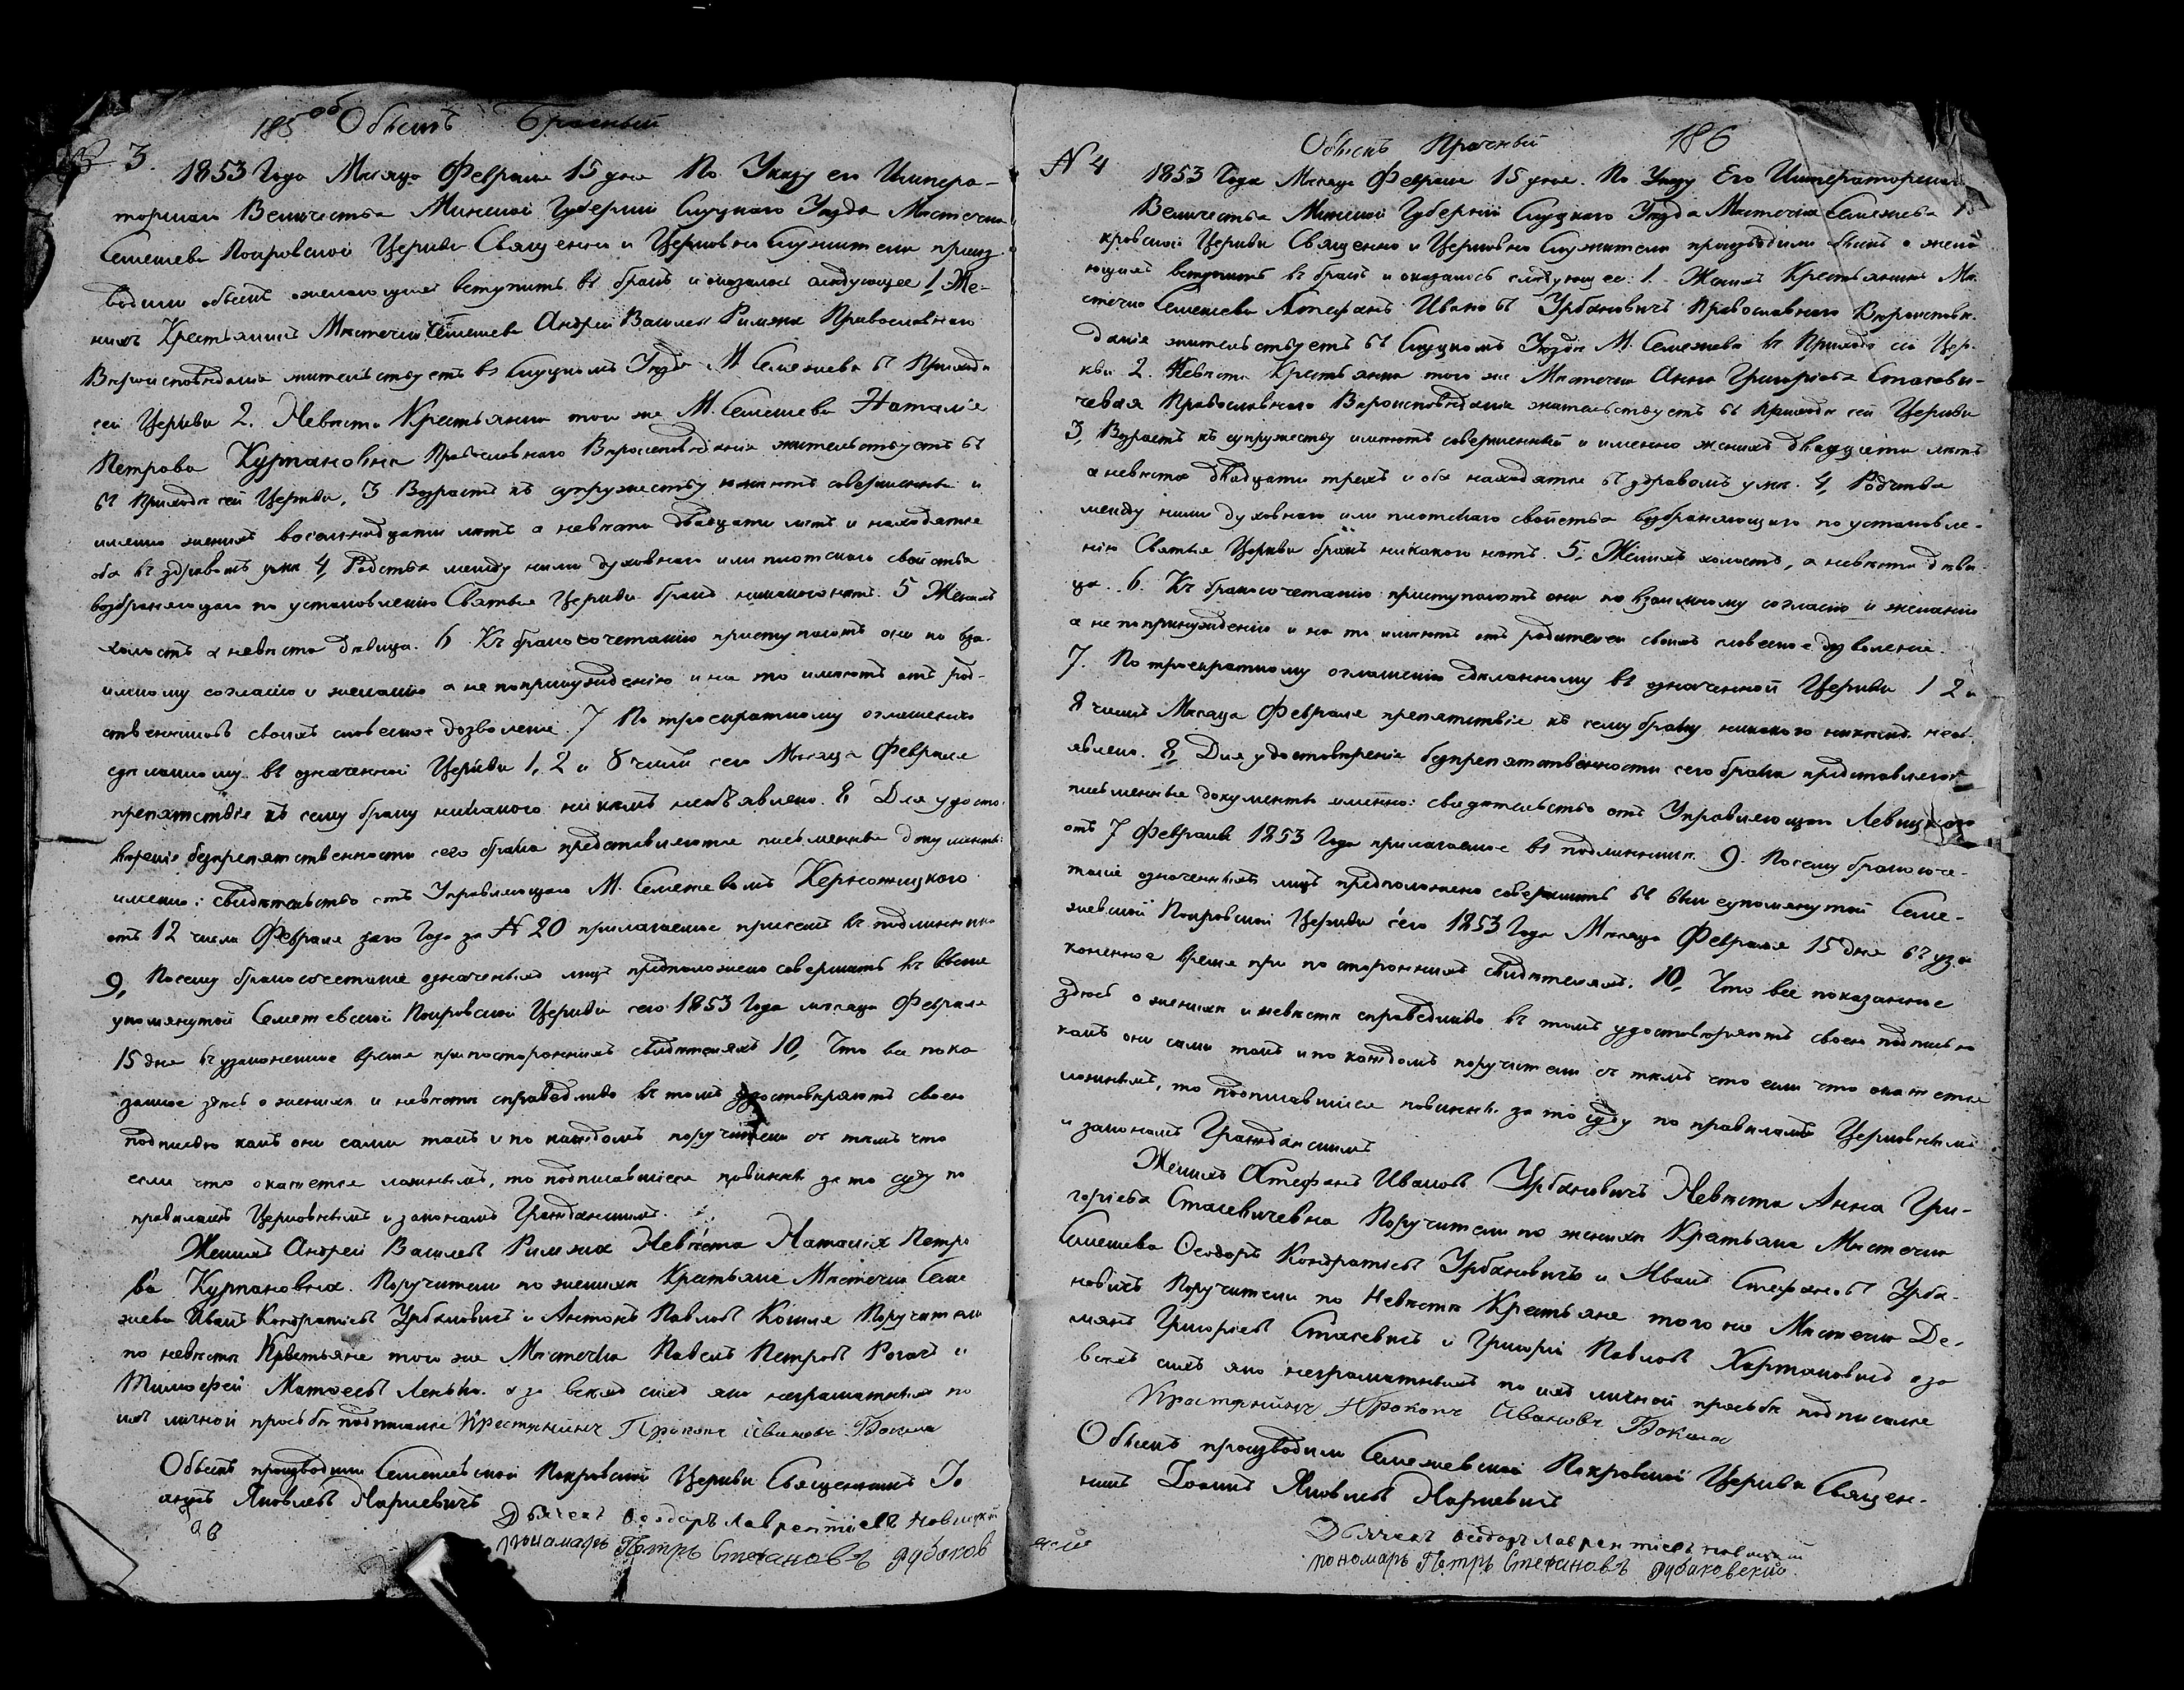 185 об Обыскъ Брачный
3.
1853 Года Мѣсяца Февраля 15 дня По Указу его Импера-
торскаго Величества Минской Губерніи Слуцкаго Уѣзда Мѣстечка
Семежева Покровской Церкви Священно и Церковно Служители произ
водили обыскъ о желающихъ вступить въ бракъ и оказалось слѣдующее 1, Же-
нихъ Крестьянинъ Мѣстечка Семежева Андрей Васильев Римжа Православнаго
Вѣроисповѣданія жительствуетъ въ Слуцкомъ Уѣздѣ М. Семежева въ Приходѣ
сей Церкви 2. Невѣста Крестьянка того же М. Семежева Наталія
Петрова Курпановна Православнаго Вѣроисповѣданія жительствуетъ въ
въ Приходѣ сей Церкви, 3 Возрастъ къ супружеству имѣютъ совершенный и
именно женихъ восемнадцати лѣтъ а невѣста двадцати лѣтъ и находятся
оба въ здравомъ умѣ 4, Родства между ними духовнаго или плотскаго свойства
возбраняющаго по установленію Святыя Церкви бракъ никакого нѣтъ. 5 Женихъ
холостъ а невѣста дѣвица. 6 Къ бракосочетанію приступаютъ они по вза-
имному согласію и желанію а не по принужденію и на то имѣютъ отъ род-
ственниковъ своихъ словесное дозволеніе. 7 По троекратному оглашенію
сдѣланному въ означенной Церкви 1, 2 и 8 чиселъ сего Мѣсяца Февраля
препятствіе къ сему браку никакого ни кѣмъ необъявлено. 8, Для удосто-
вѣренія безпрепятственности сего брака представляются письменные документы
именно: свидѣтельство отъ Управляющаго М. Семежевомъ
отъ 12 числа Февраля сего Года за № 20 прилагаемое присемъ въ подлинникѣ
9, Посему бракосочетаніе означенныхъ лицъ предположено совершить въ выше
упомянутой Семежевской Покровской Церкви сего 1853 Года мѣсяца Февраля
15 дня въ узаконенное время при постороннихъ свидѣтеляхъ 10, Что все пока
занное здѣсь о женихѣ и невѣстѣ справедливо въ томъ удостовѣряютъ своею
подписью какъ они сами такъ и по каждомъ поручители съ тѣмъ что
если что окажется ложнымъ, то подписавшіеся повинны за то суду по
правиламъ Церковнымъ и законамъ Гражданскимъ.
Женихъ Андрей Васильевъ Римжа Невѣста Наталія Петро
ва Курпановна. Поручители по женихѣ Крестьяне Мѣстечка Семе
жева Иванъ Кондратіевъ Урбановичъ и Антонъ Павловъ Кошля Поручители
по невѣстѣ Крестьяне того же Мѣстечка Павелъ Петровъ Рогачъ и
Тимофей Матвеевъ Ленько. а за всехъ сихъ яко неграматныхъ по
ихъ личной просьбѣ подписался Крестянинъ Прокопъ Ивановъ Бокша
Обыскъ производили Семежевской Покровской Церкви Священникъ Іо
аннъ Яковлевъ Наркевичъ
Дьячекъ Ѳеодоръ Лаврентіевъ Новицкій
пономарь Петръ Стефановъ Дубаков
Обыскъ Брачный 186
№ 4
1853 Года Мѣсяца Февраля 15 дня. По Указу Его Императорскаго
Величества Минской Губерніи Слуцкаго Уѣзда Мѣстечка Семежева По
кровской Церкви Священно и Церковно Служители производили обыскъ о жела
ющихъ вступить въ бракъ и оказалось слѣдующее: 1. Женихъ Крестьянинъ Мѣ
стечка Семежева Стефанъ Ивановъ Урбановичъ Православнаго Вѣроисповѣ
данія жительствуетъ въ Слуцкомъ Уѣздѣ М. Семежева въ Приходѣ сей Цер-
кви 2. Невѣста Крестьянка того же Мѣстечка Анна Григорьева Стасеви-
чевая Православнаго Вѣроисповѣданія жительствуетъ въ Приходѣ сей Церкви
3, Возрастъ къ супружеству имѣютъ совершенный и именно женихъ двадцати лѣтъ
а невѣста двадцати трехъ и оба находятся въ здравомъ умѣ. 4, Родства
между ними духовнаго или плотскаго свойства возбраняющаго по установле-
нію Святыя Церкви бракъ никакого нѣтъ. 5. Женихъ холостъ, а невѣста дѣви
ца. 6. Къ бракосочетанію приступаютъ они по взаимному согласію и желанію
а не по принужденію и на то имѣютъ отъ родителей своихъ словесное дозволеніе.
7. По троекратному оглашенію сдѣланному въ означенной Церкви 1 2 и
8 чиселъ Мѣсяца Февраля препятствіе къ сему браку никакого никѣмъ необъ
явлено. 8, Для удостовѣренія безпрепятственности сего брака представляются
письменные документы именно: свидѣтельство отъ Управляющаго Левицкаго
отъ 7 Февраля 1853 Года прилагаемое въ подлинникѣ. 9. Посему бракосоче-
таніе означенныхъ лицъ предположено совершить въ вышеупомянутой Семе-
жевской Покровской Церкви сего 1853 Года Мѣсяца Февраля 15 дня въ уза
коненное время при постороннихъ свидѣтеляхъ. 10, Что все показанное
здѣсь о женихѣ и невѣстѣ справедливо въ томъ удостовѣряютъ своею подписью
какъ они сами такъ и по каждомъ поручители съ тѣмъ что если что окажется
ложнымъ, то подписавшіеся повинны за то суду по правиламъ Церковнымъ
и законамъ Гражданскимъ
Женихъ Стефанъ Ивановъ Урбановичъ Невѣста Анна Гри-
горіева Стасевичевна Поручители по женихѣ Крестьяне Мѣстечка
Семежева Ѳеодоръ Кондратіевъ Урбановичъ и Иванъ Стефановъ Урба-
новичъ Поручители по Невѣстѣ Крестьяне того же Мѣстечка Де-
мянъ Григоріевъ Стасевичъ и Григорій Павловъ Хартановичъ а за
всехъ сихъ яко неграматныхъ по ихъ личной просьбѣ подписался
Крестянинъ Прокопъ Ивановъ Бокша
Обыскъ производили Семежевской Покровской Церкви Священ-
никъ Іоаннъ Яковлевъ Наркевичъ
Дьячекъ Ѳеодоръ Лаврентіевъ Новицкій
пономарь Петръ Стефановъ Дубаковскій